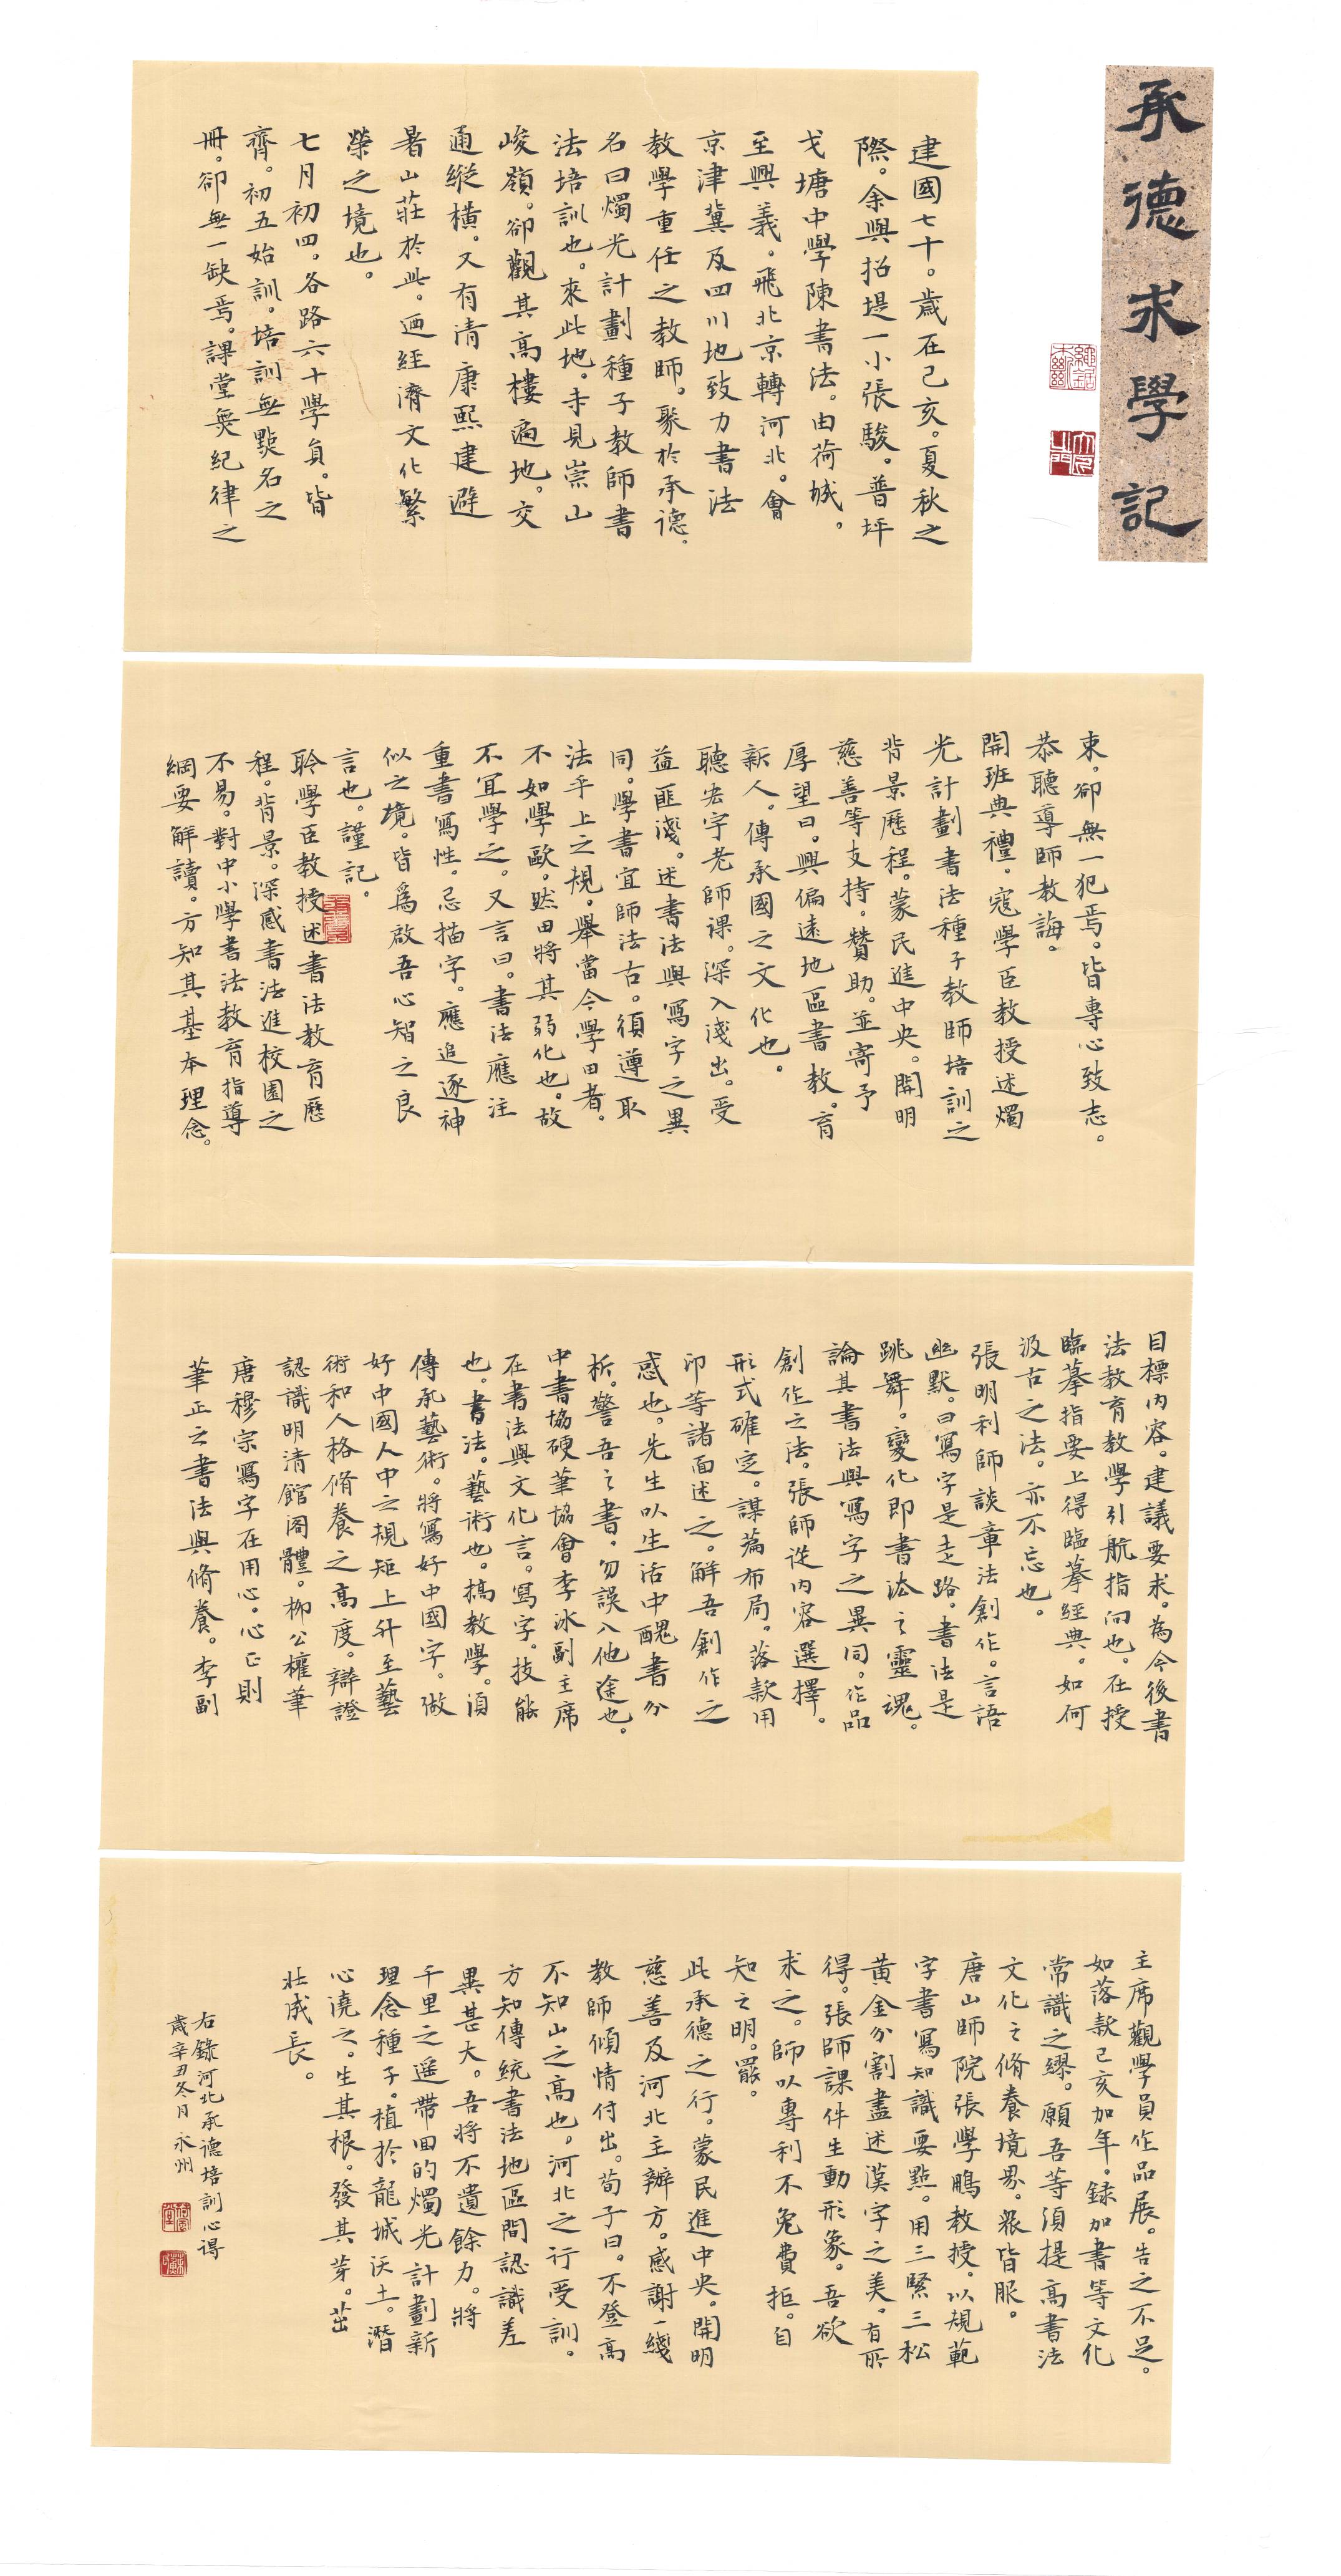 承德求學記
建國七十。歲在己亥。夏秋之
際。余與招堤一小張駿。普坪
戈塘中學陳書法。由荷城。
至興義。飛北京轉河北。會
京津冀及四川地致力書法
教學重任之教師。聚於承德。
名曰燭光計劃種子教師書
法培訓也。來此地。未見崇山
峻嶺。卻觀其高樓遍地。交
通縱橫。又有清康熙建避
暑山莊於此。迺經濟文化繁
榮之境也。
七月初四。各路六十學員。皆
齊。初五始訓。培訓無點名之
冊。卻無一缺焉。課堂無紀律之
束。卻無一犯焉。皆專心致志。
恭聽導師教誨。
開班典禮。寇學臣教授述燭
光計劃書法種子教師培訓之
背景歷程。蒙民進中央。開明
慈善等支持。贊助。並寄予
厚望曰。興偏遠地區書教。育
新人。傳承國之文化也。
聽宏宇老師課。深入淺出。受
益匪淺。述書法與寫字之異
同。學書宜師法古。須遵取
法乎上之規。舉當今學田者。
不如學歐。然田將其弱化也。故
不宜學之。又言曰。書法應注
重書寫性。忌描字。應追逐神
似之境。皆爲啟吾心智之良
言也。謹記。
聆學臣教授述書法教育歷
程。背景。深感書法進校園之
不易。對中小學書法教育指導
綱要解讀。方知其基本理念。
目標內容。建議要求。為今後書
法教育教學引航指向也。在授
臨摹指要上得臨摹經典。如何
汲古之法。亦不忘也。
張明利師談章法創作。言語
幽默。曰寫字是走路。書法是
跳舞。變化即書法之靈魂。
論其書法與寫字之異同。作品
創作之法。張師從內容選擇。
形式確定。謀篇布局。落款用
印等諸面述之。解吾創作之
惑也。先生以生活中醜書分
析。警吾之書。勿誤入他途也。
中書協硬筆協會李冰副主席
在書法與文化言。寫字。技能
也。書法。藝術也。搞教學。須
傳承藝術。將寫好中國字。做
好中國人中之規矩上升至藝
術和人格脩養之高度。辯證
認識明清館閣體。柳公權筆
唐穆宗寫字在用心。心正則
筆正之書法與脩養。李副
主席觀學員作品展。告之不足。
如落款己亥加年。錄加書等文化
常識之繆。願吾等須提高書法
文化之脩養境界。衆皆服。
唐山師院張學鵬教授。以規範
字書寫知識要點。用三緊三松
黃金分割盡述漢字之美。有所
得。張師課件生動形象。吾欲
求之。師以專利不免費拒。自
知之明。罷。
此承德之行。蒙民進中央。開明
慈善及河北主辦方。感謝一綫
教師傾情付出。荀子曰。不登高
不知山之高也。河北之行受訓。
方知傳統書法地區間認識差
異甚大。吾將不遺餘力。將
千里之遥帶回的燭光計劃新
理念種子。植於龍城沃土。潛
心澆之。生其根。發其芽。茁
壯成長。
右錄河北承德培訓心得
歲辛丑冬月永州